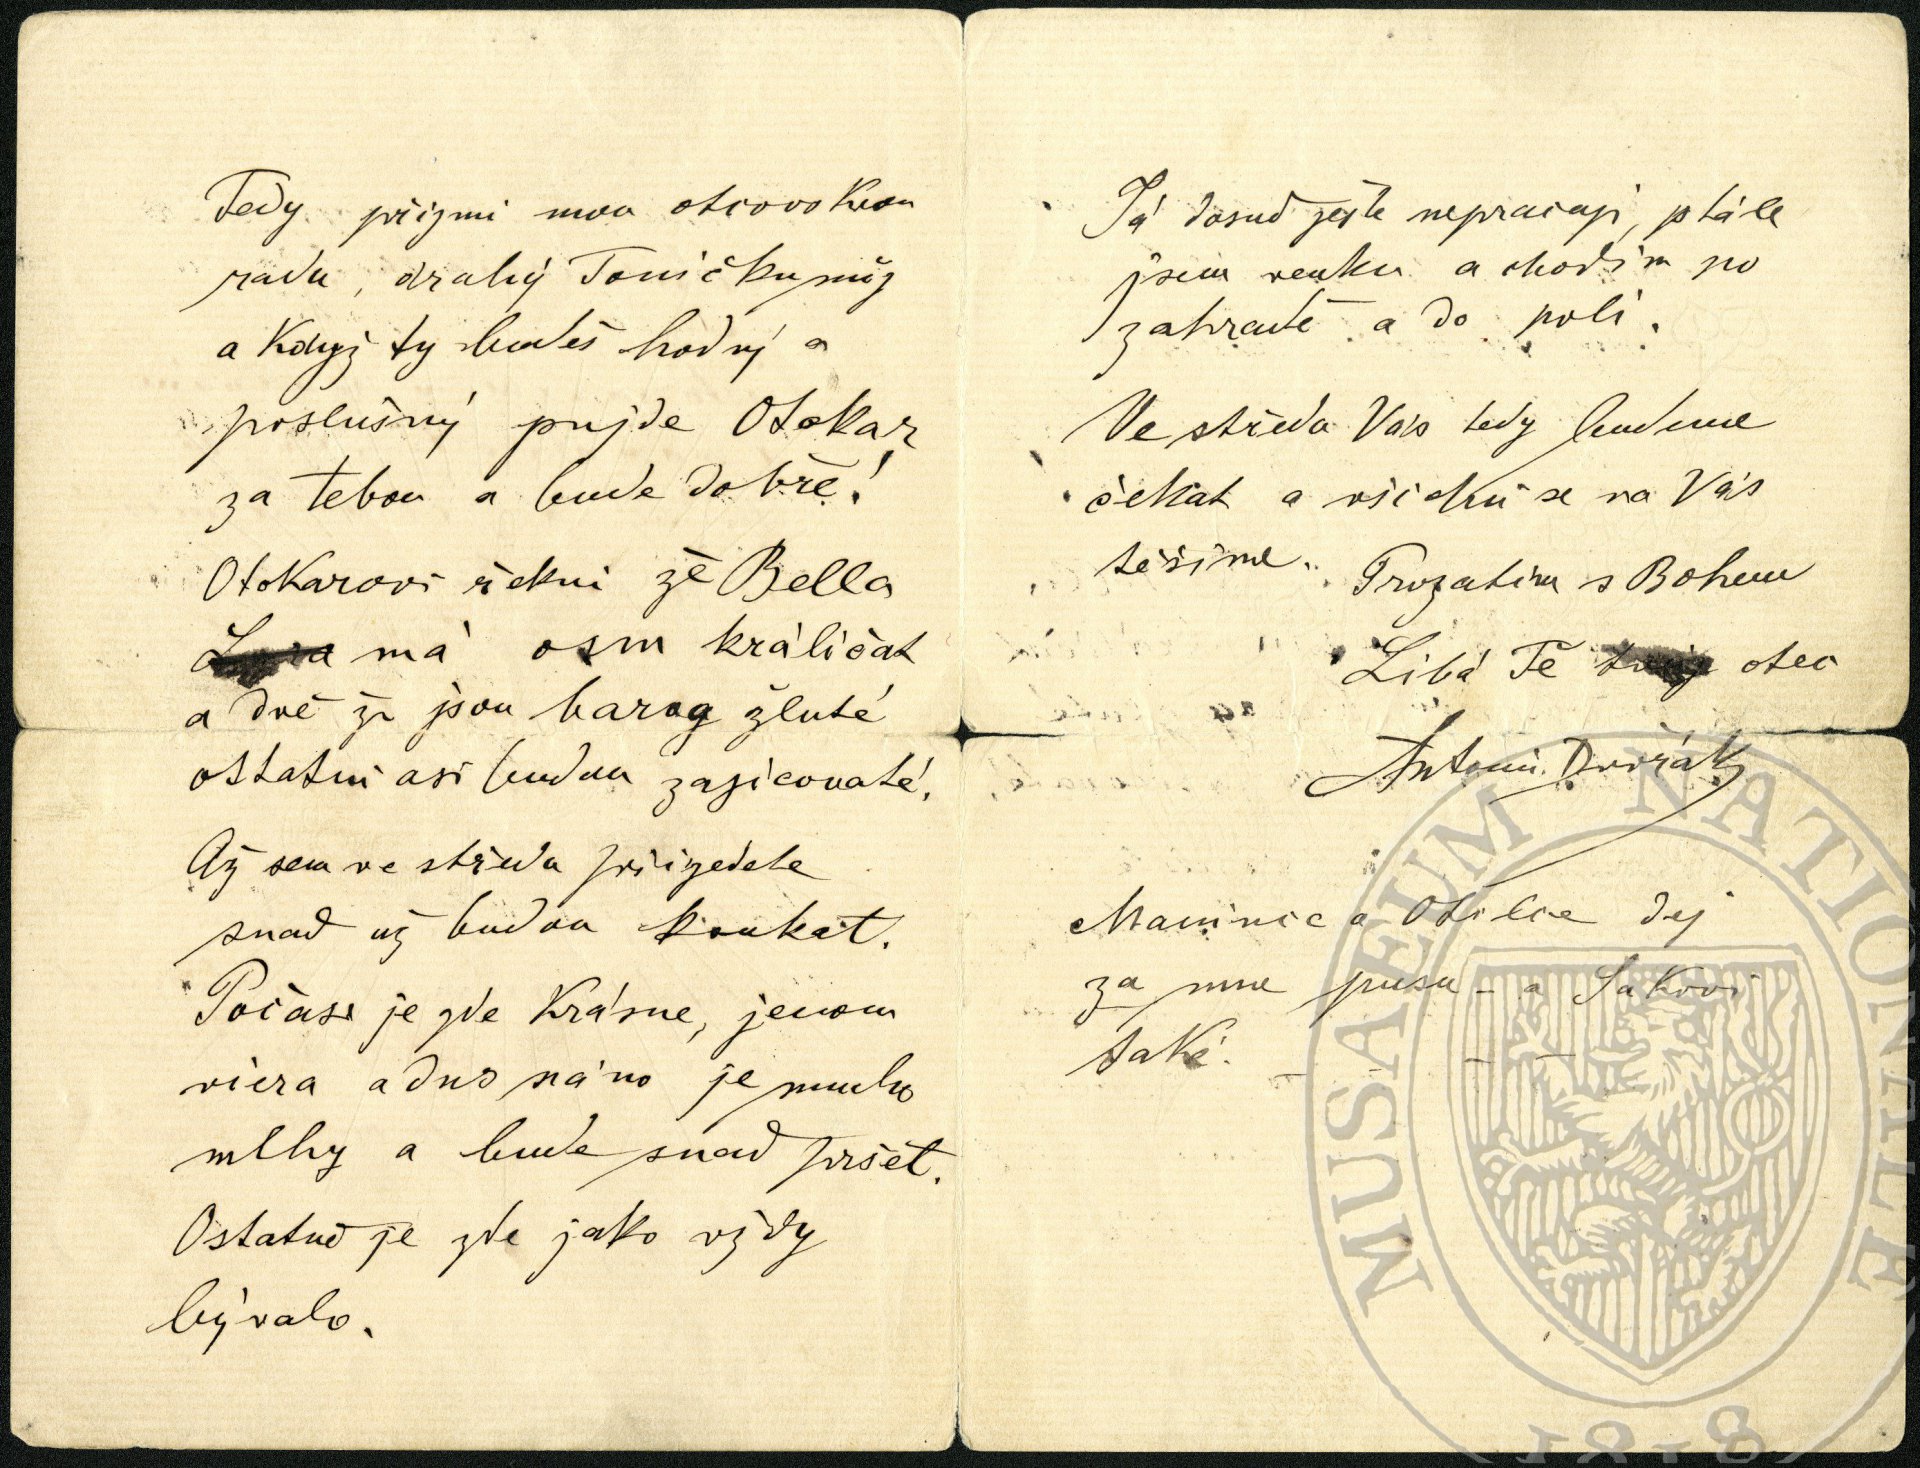 Tedy přijmi mou otcovskou
radu, drahý Toničku můj
a když ty budeš hodný a
poslušný pujde Otakar
za tebou a bude dobře!
Otokarovi řekni že Bella
má osm králičat
a dvě z jsou barvy žluté
ostatni asi budou zajicovaté.
Až sem ve středu přijedete
snad už budou koukat.
Počasi je zde krásne, jenom
včera a dnes ráno je mnoho
mlhy a bude snad pršet.
Ostatně je zde jako vždy
bývalo.
Já dosud ještě nepracuji, stále
jsem venku a chodim po
zahradě a do poli.
Ve středu Vás tedy budeme
čekat a všickni se na Vás
těšime. Prozatim s Bohem
Libá Tě tvůj otec
Antonin Dvořák
Mamince a Otilce dej
za mne pusu – a
také.
MUSAEUM NATIONALE
1818